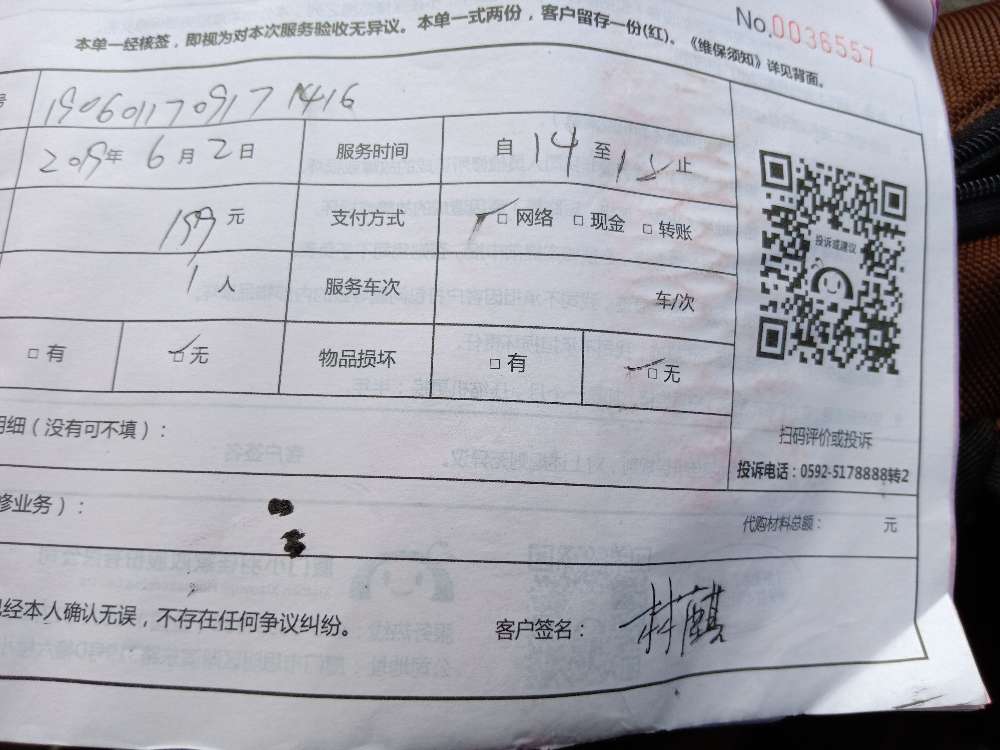 No.0036557
本单一经核签，即视为对本次服务验收无异议。本单一式两份，客户留存一份(红)。《维保须知》详见背面。
号 190601170917 1416
2019年 6月2日 服务时间 自 14 至 18 止
199 元 支付方式 □网络 □现金 □转账
1 人 服务车次 车/次
□有 □无 物品损坏 □有 □无
投诉或建议
扫码评价或投诉
投诉电话：0592-5178888转2
明细（没有可不填）：
修业务）：
代购材料总额： 元
已经本人确认无误，不存在任何争议纠纷。
客户签名： 林麒